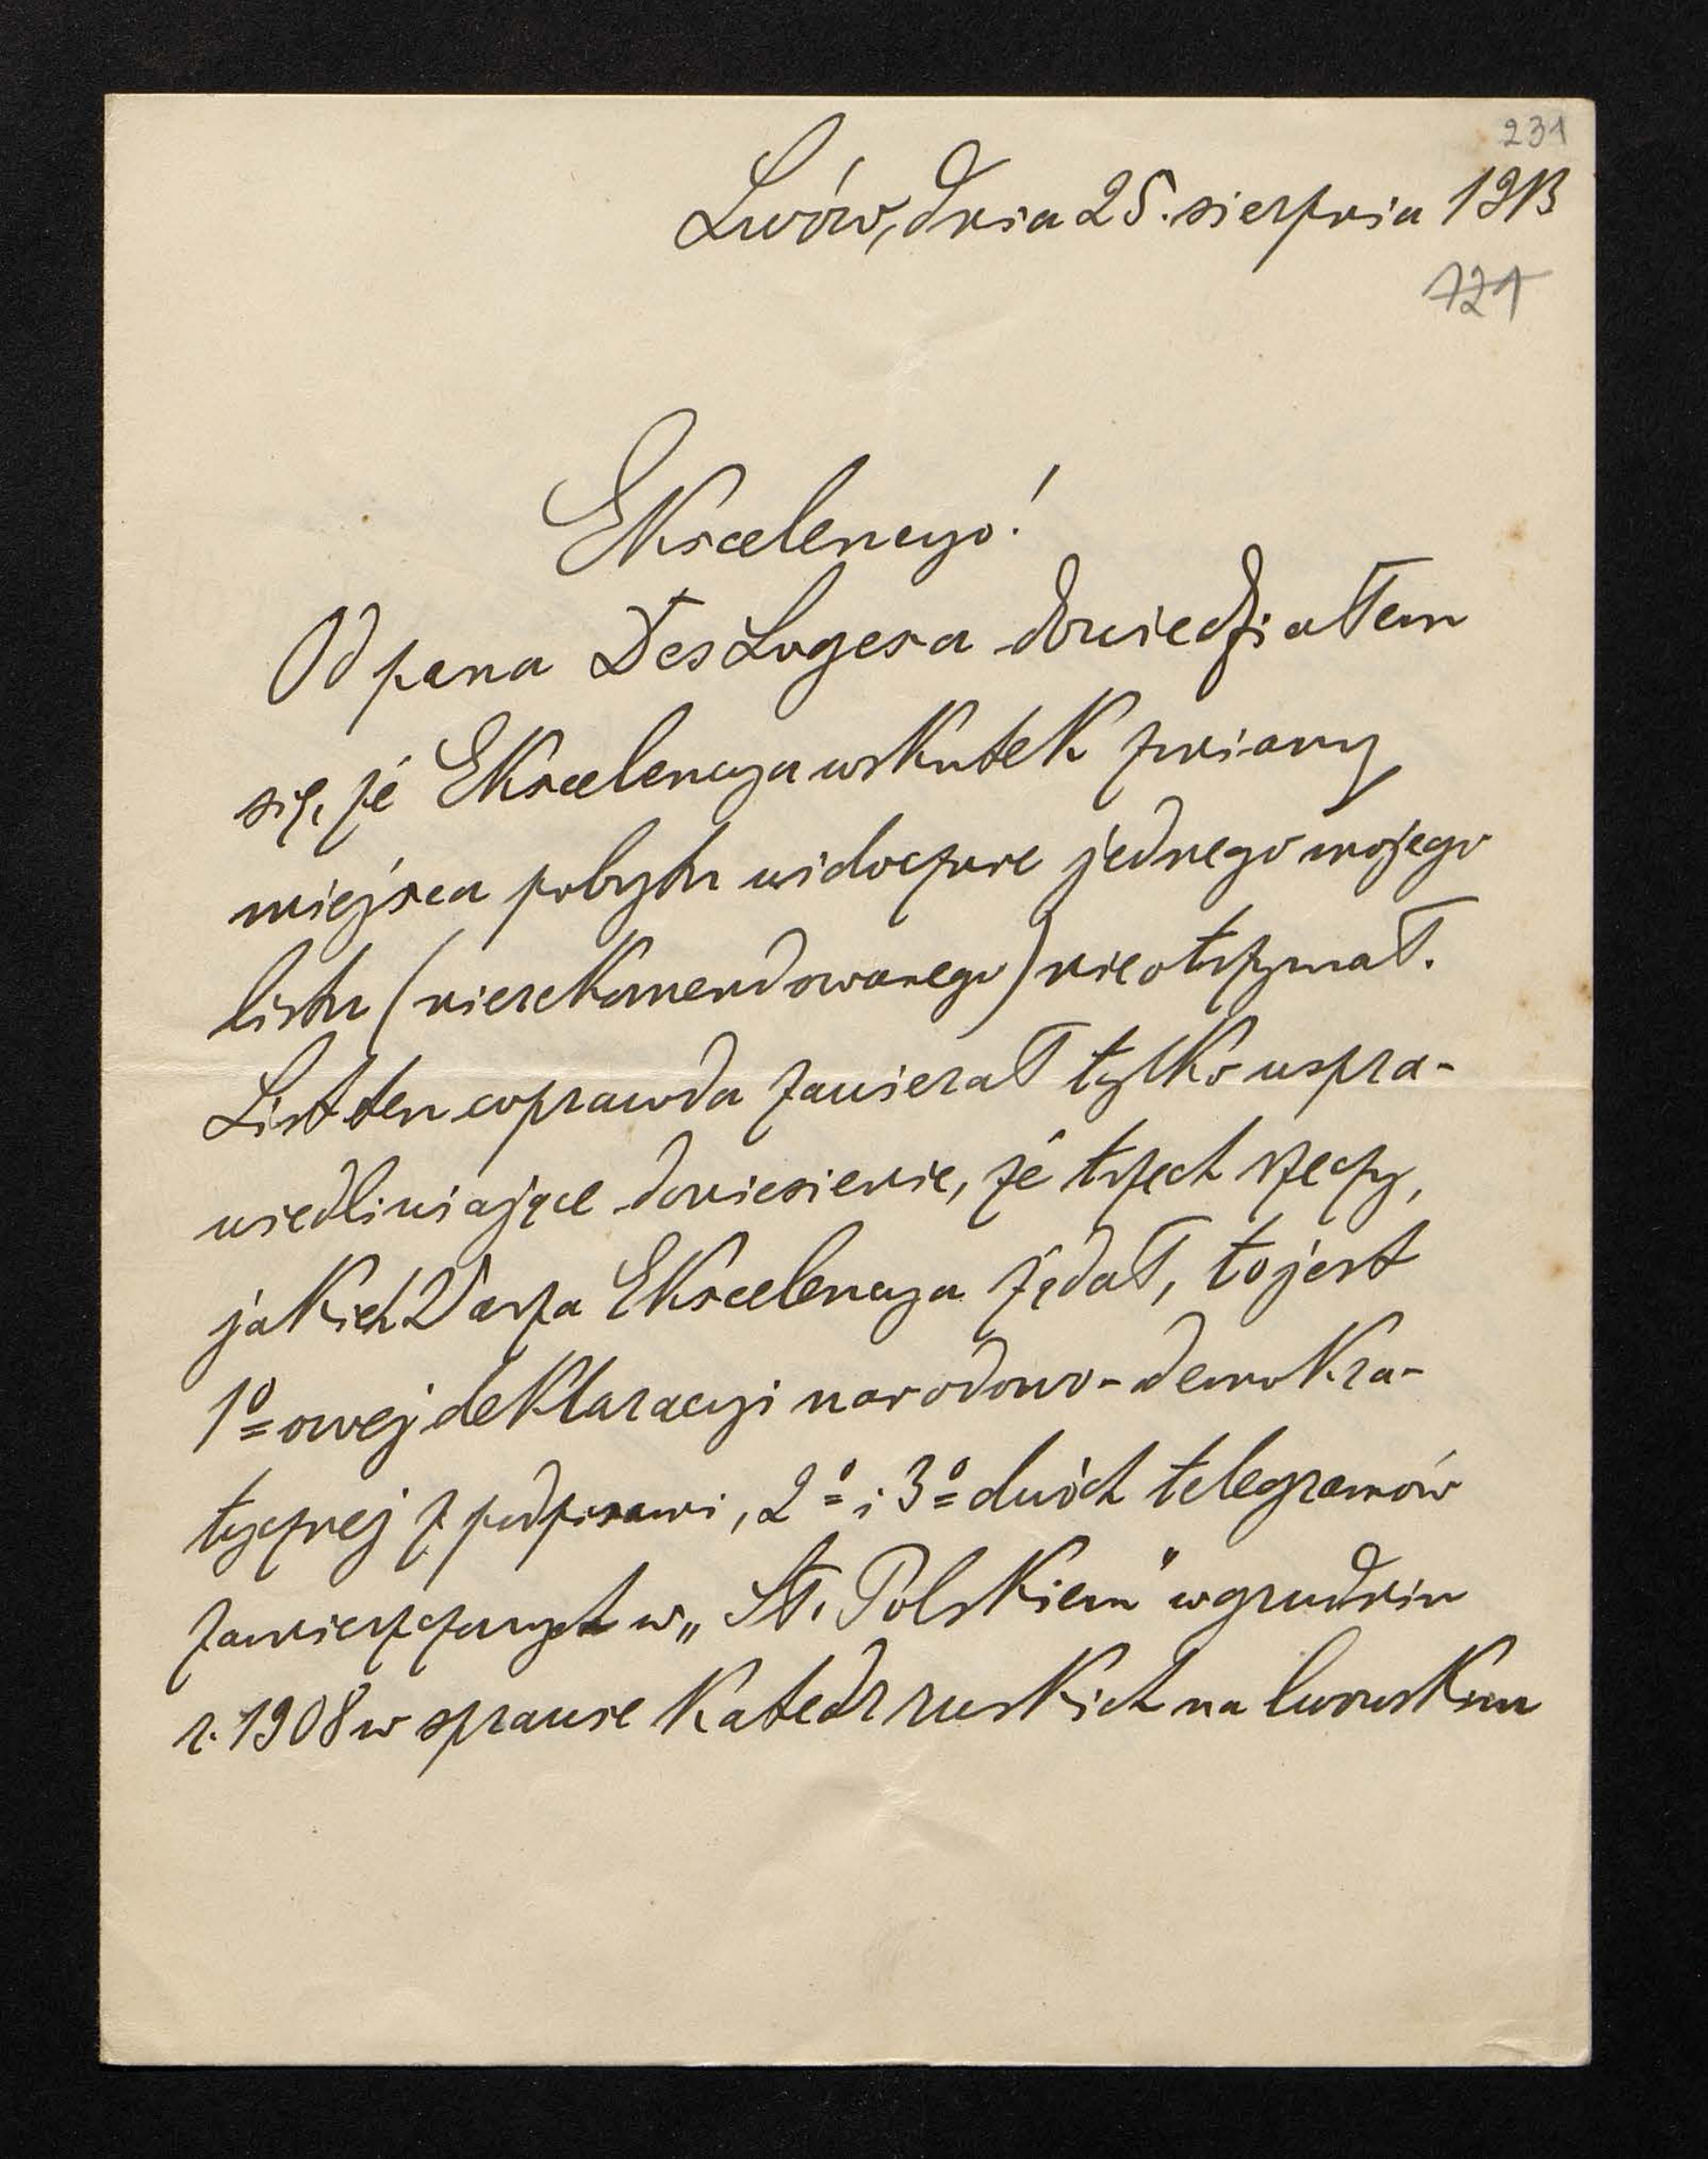 231
Lwów, dnia 25. sierpnia 1913
721
Ekscelencyo!
Od pana Des Logesa dowiedziałem
się, że Ekscelencya wskutek zmiany
miejsca pobytu widocznie jednego mojego
listu (nierekomendowanego) nie otrzymał.
List ten coprawda zawierał tylko uspra-
wiedliwiające doniesienie, że trzech rzeczy,
jakich Wasza Ekscelencya żądał, to jest
1º owej deklaracyi narodowo-demokra-
tycznej z podpisami, 2º i 3º dwóch telegramów
zamieszczonych w „Sł. Polskiem" w grudniu
r. 1908 w sprawie katedr ruskich na lwowskim